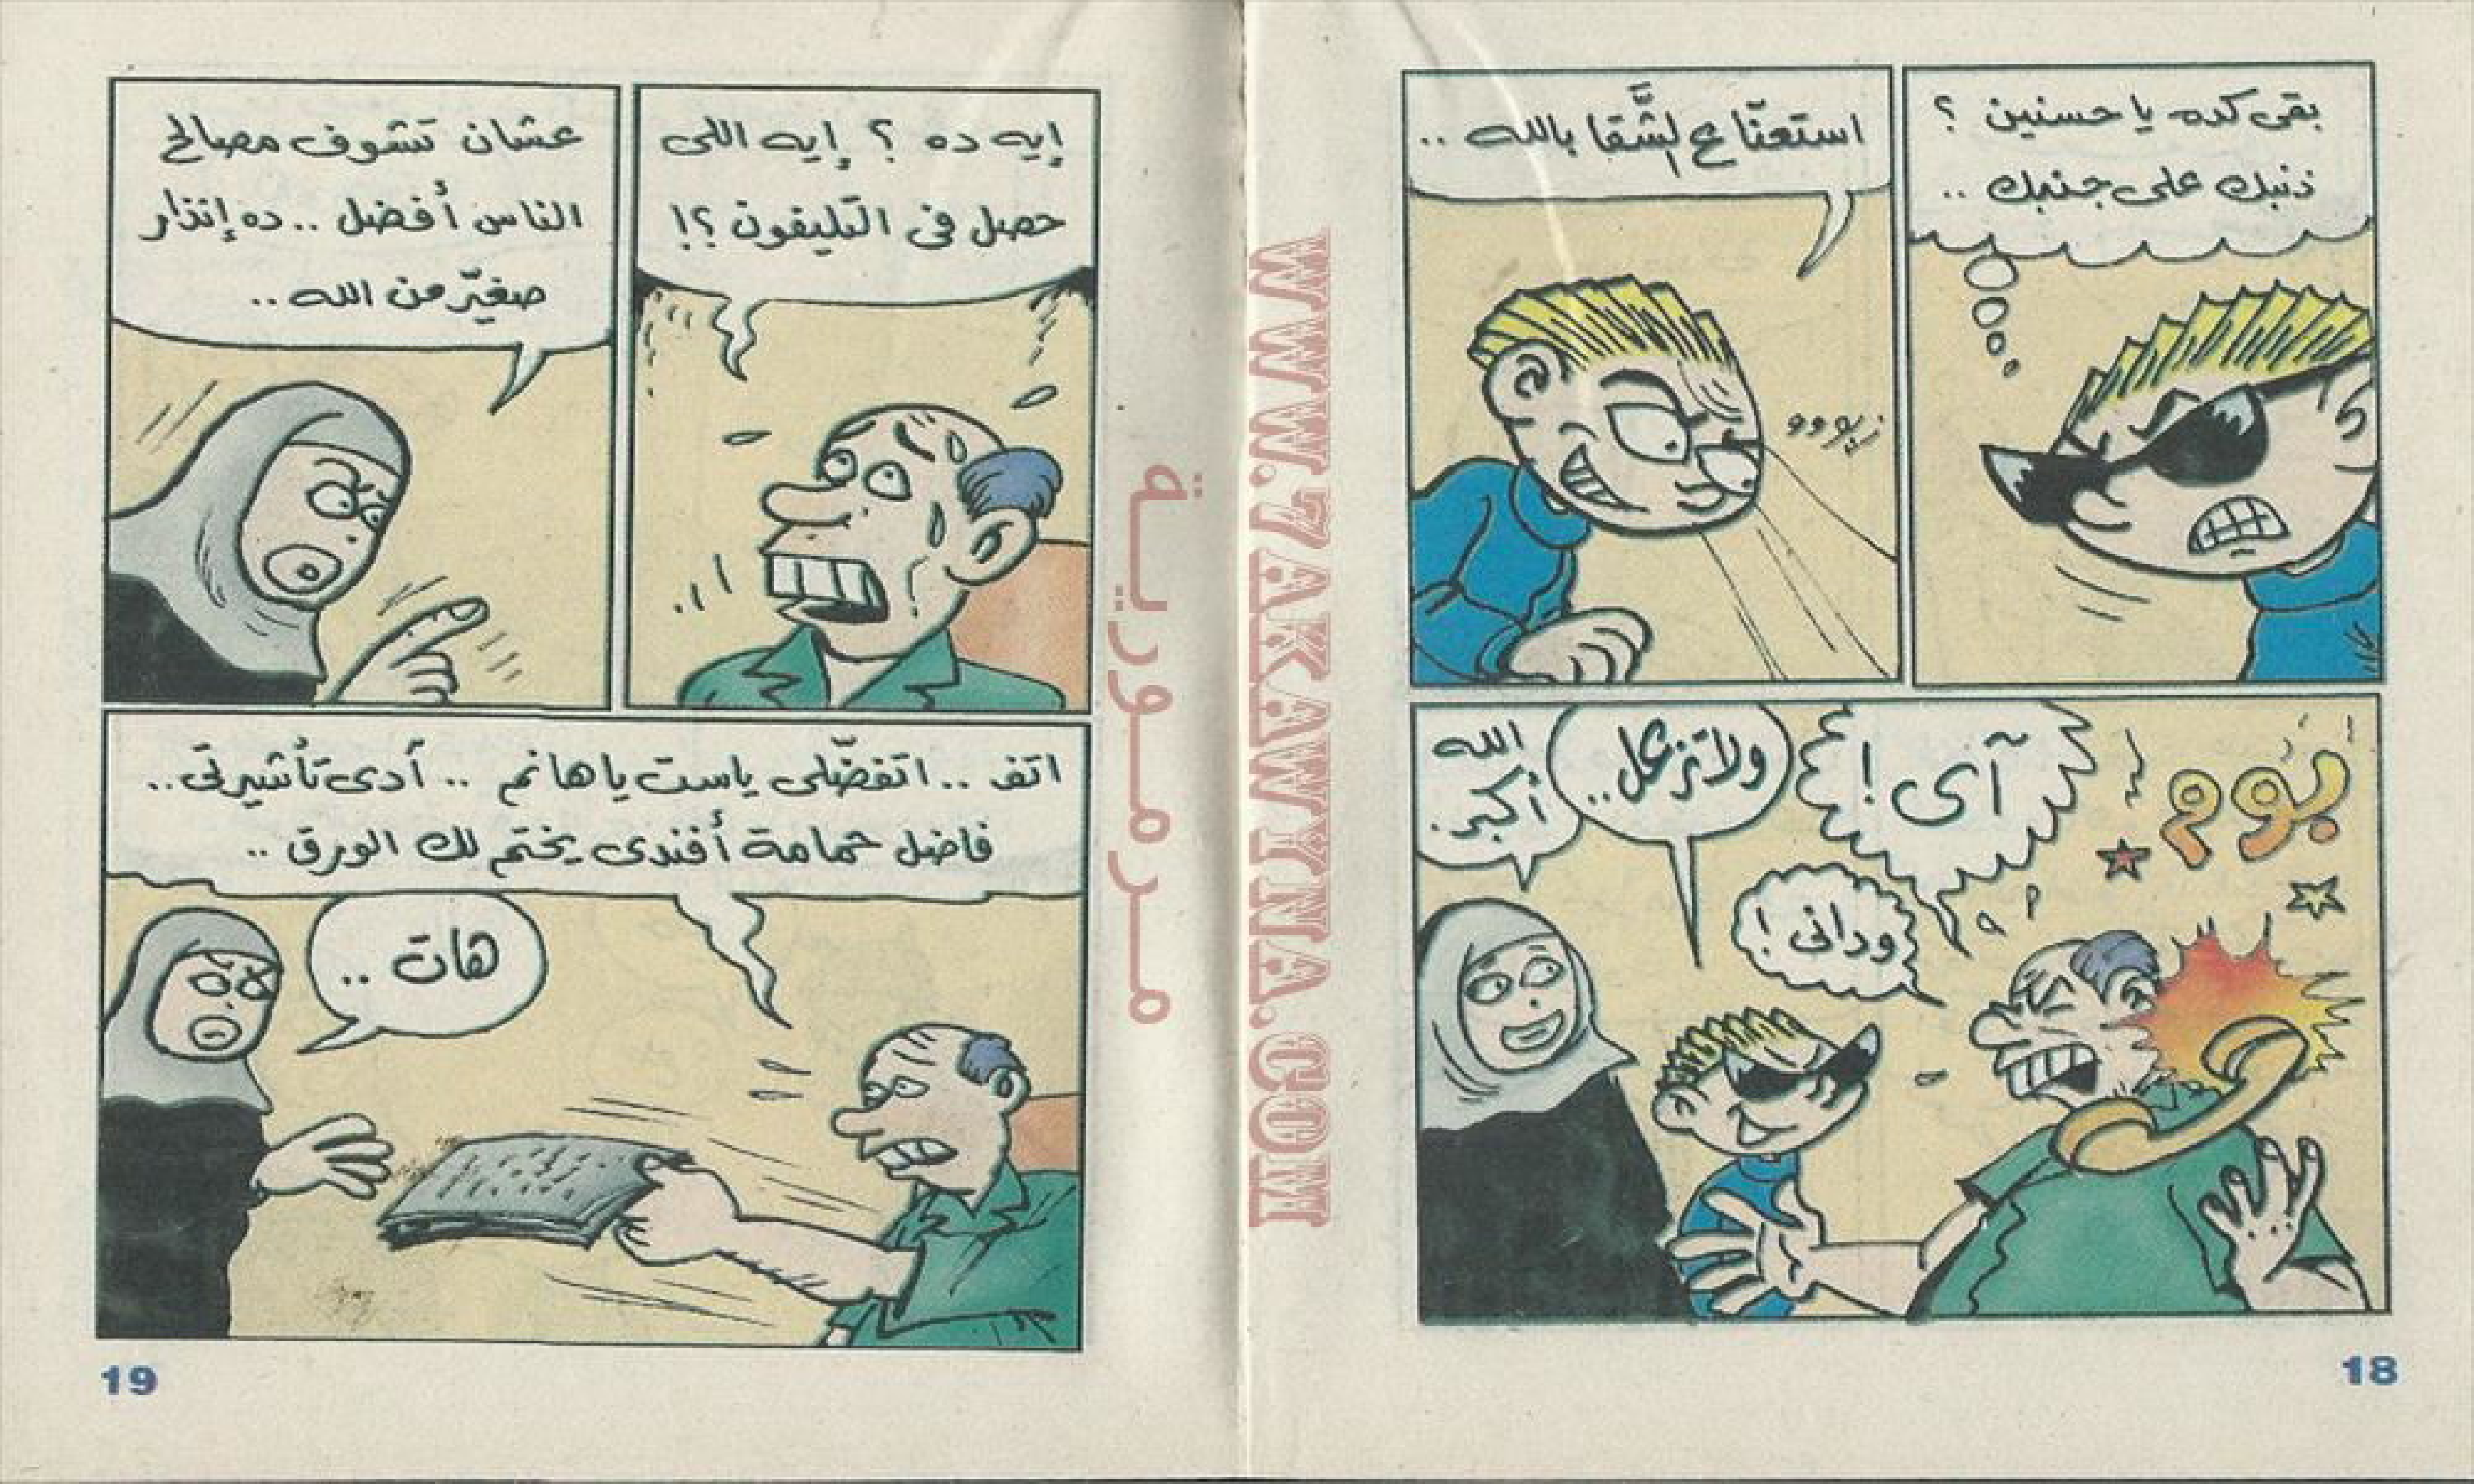 بقى كده يا حسنين ؟
ذنبك على جنبك ..
استعنّا ع الشَّقا بالله ..
زيووو
بوم
آى !
ودانى !
ولا تزعل ..
الله
أكبر .
18
إيه ده ؟ إيه اللى
حصل فى التليفون ؟!
عشان تشوف مصالح
الناس أفضل .. ده إنذار
صغيّر من الله ..
اتفـ .. اتفضّلى يا ست يا هانم .. آدى تأشيرتى ..
فاضل حمامة أفندى يختم لك الورق ..
هات ..
19
مرمورية
WWW.7AKAWYNA.COM